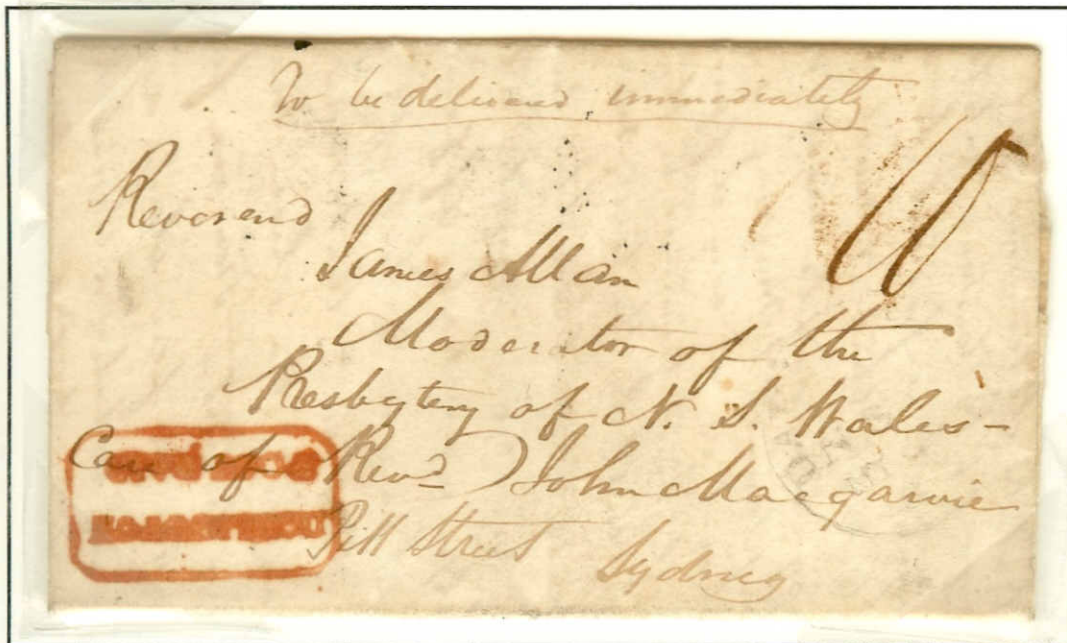 To be delivered immediately
Reverend
James Allan
Moderator of the
Presbytery of N. S. Wales -
Care of Revd John Macgarvie
Pitt Street Sydney